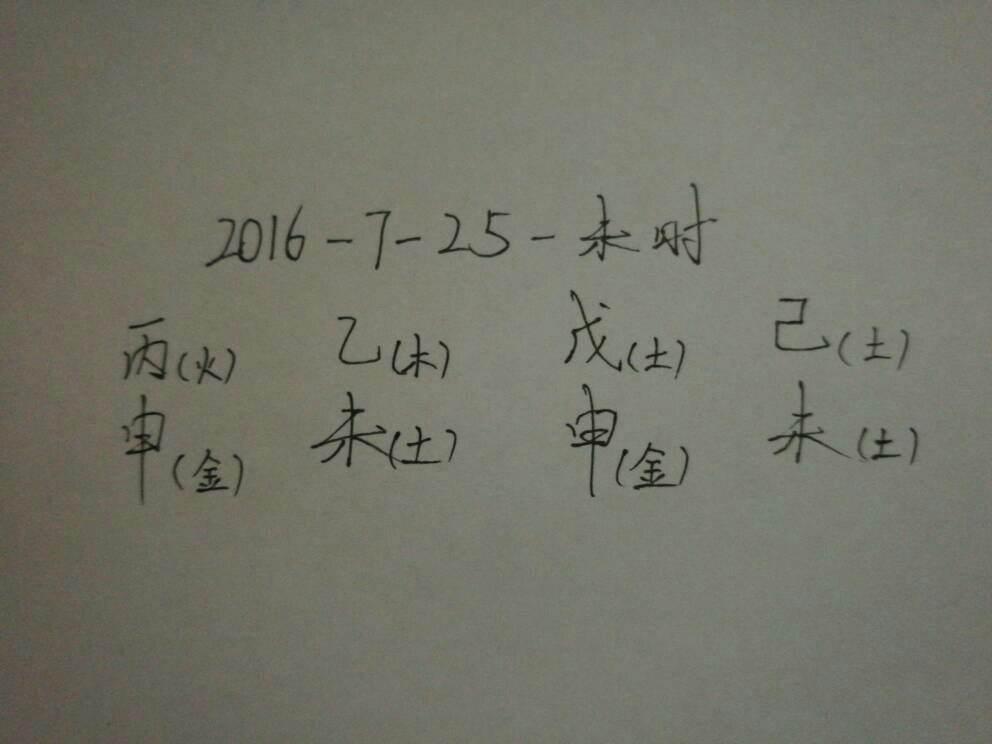 2016-7-25-未时
丙(火) 乙(木) 戊(土) 己(土)
申(金) 未(土) 申(金) 未(土)